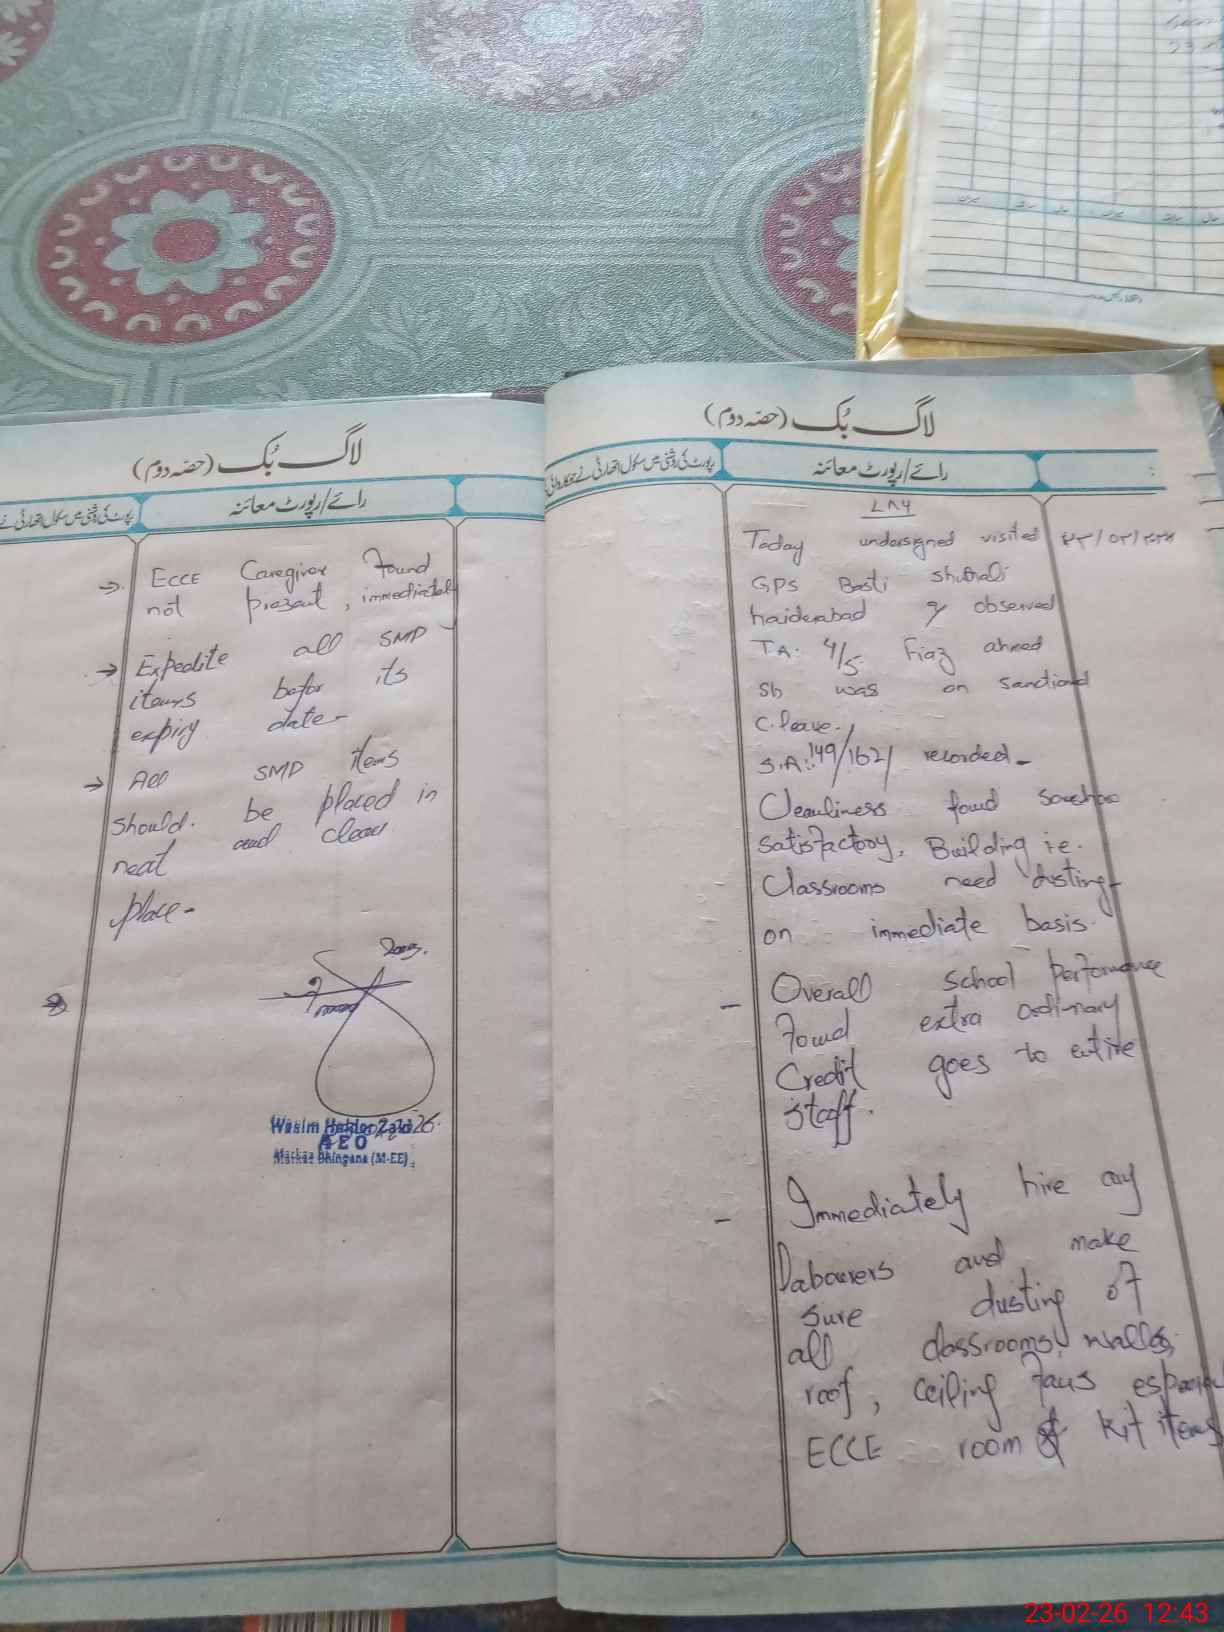 لاگ بُک (حصّہ دوم)
رائے/رپورٹ معائنہ
رپورٹ کی روشنی میں سکول اتھارٹی نے جو کاروائی
Today undersigned visited
GPS Basti
haiderabad & observed
T.A. 4/5. Fiaz ahmed
sb was on sanctioned
C. leave.
S.A: 149/162/ recorded -
Cleanliness found
satisfactory, Building i.e.
Classrooms need dusting
on immediate basis.
- Overall school performance
found extra ordinary
Credit goes to entire
staff.
- Immediately hire any
labourers and make
sure dusting of
all classrooms, walls,
roof, ceiling fans
ECCE room & kit items
لاگ بُک (حصّہ دوم)
رائے/رپورٹ معائنہ
رپورٹ کی روشنی میں سکول اتھارٹی نے
→ ECCE Caregiver found
not present, immediately
→ Expedite all SMP
items befor its
expiry date -
→ All SMP items
should be placed in
neat and clean
place -
AEO
Markaz Bhingana (M-EE)
23-02-26 12:43